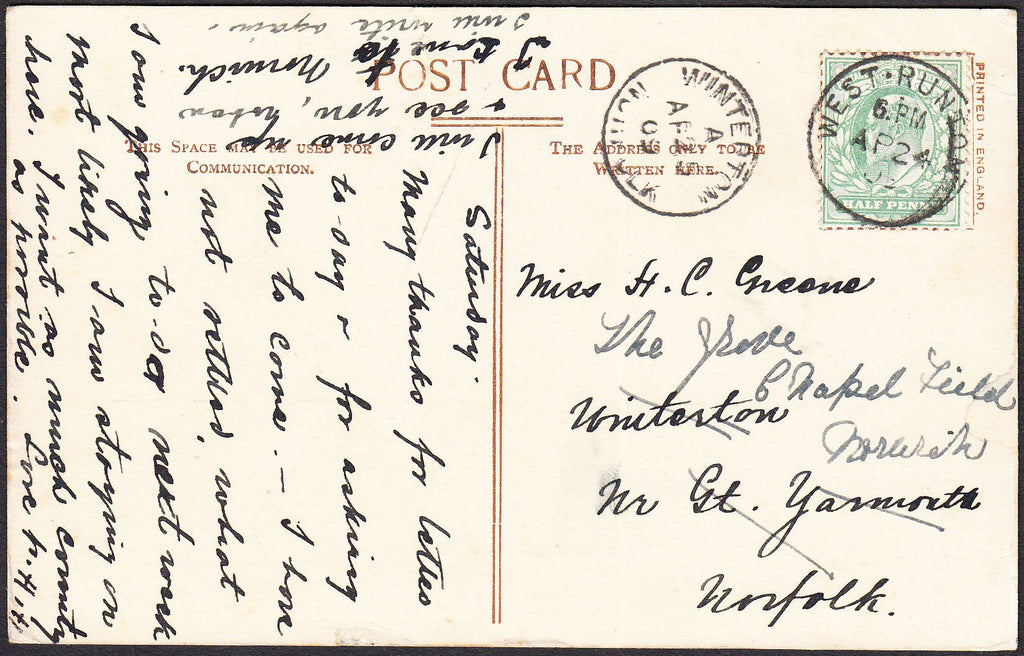 POST CARD
THIS SPACE MAY BE USED FOR
COMMUNICATION.
THE ADDRESS ONLY TO BE
WRITTEN HERE.
PRINTED IN ENGLAND.
WINTERTON
A
AP
WEST·RUNTON
6.PM
AP24
HALF PENNY
Miss H. C. Greene
The Grove
Chapel Field
Winterton
Norwich
Nr Gt. Yarmouth
Norfolk.
Saturday.
Many thanks for letter
to-day & for asking
me to come. — I have
not settled, what
I am going to do next week
most likely I am stopping on
here. I want as much country
as possible. Love
I will come up
& see you, when
I come to Norwich.
I will write again.